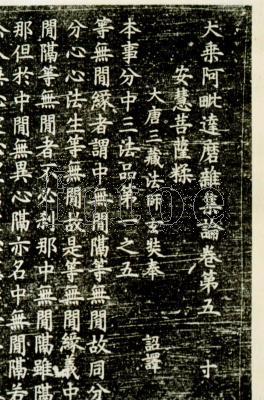 大乘阿毗達磨雜集論卷第五 寸
安慧菩薩糅
大唐三藏法師玄奘奉 詔譯
本事分中三法品第一之五
等無間緣者謂中無間隔等無間故同分
分心心法生等無間故是等無間緣義中
間隔等無間者不必剎那中無間隔雖隔
那但於中間無異心隔亦名中無間隔若